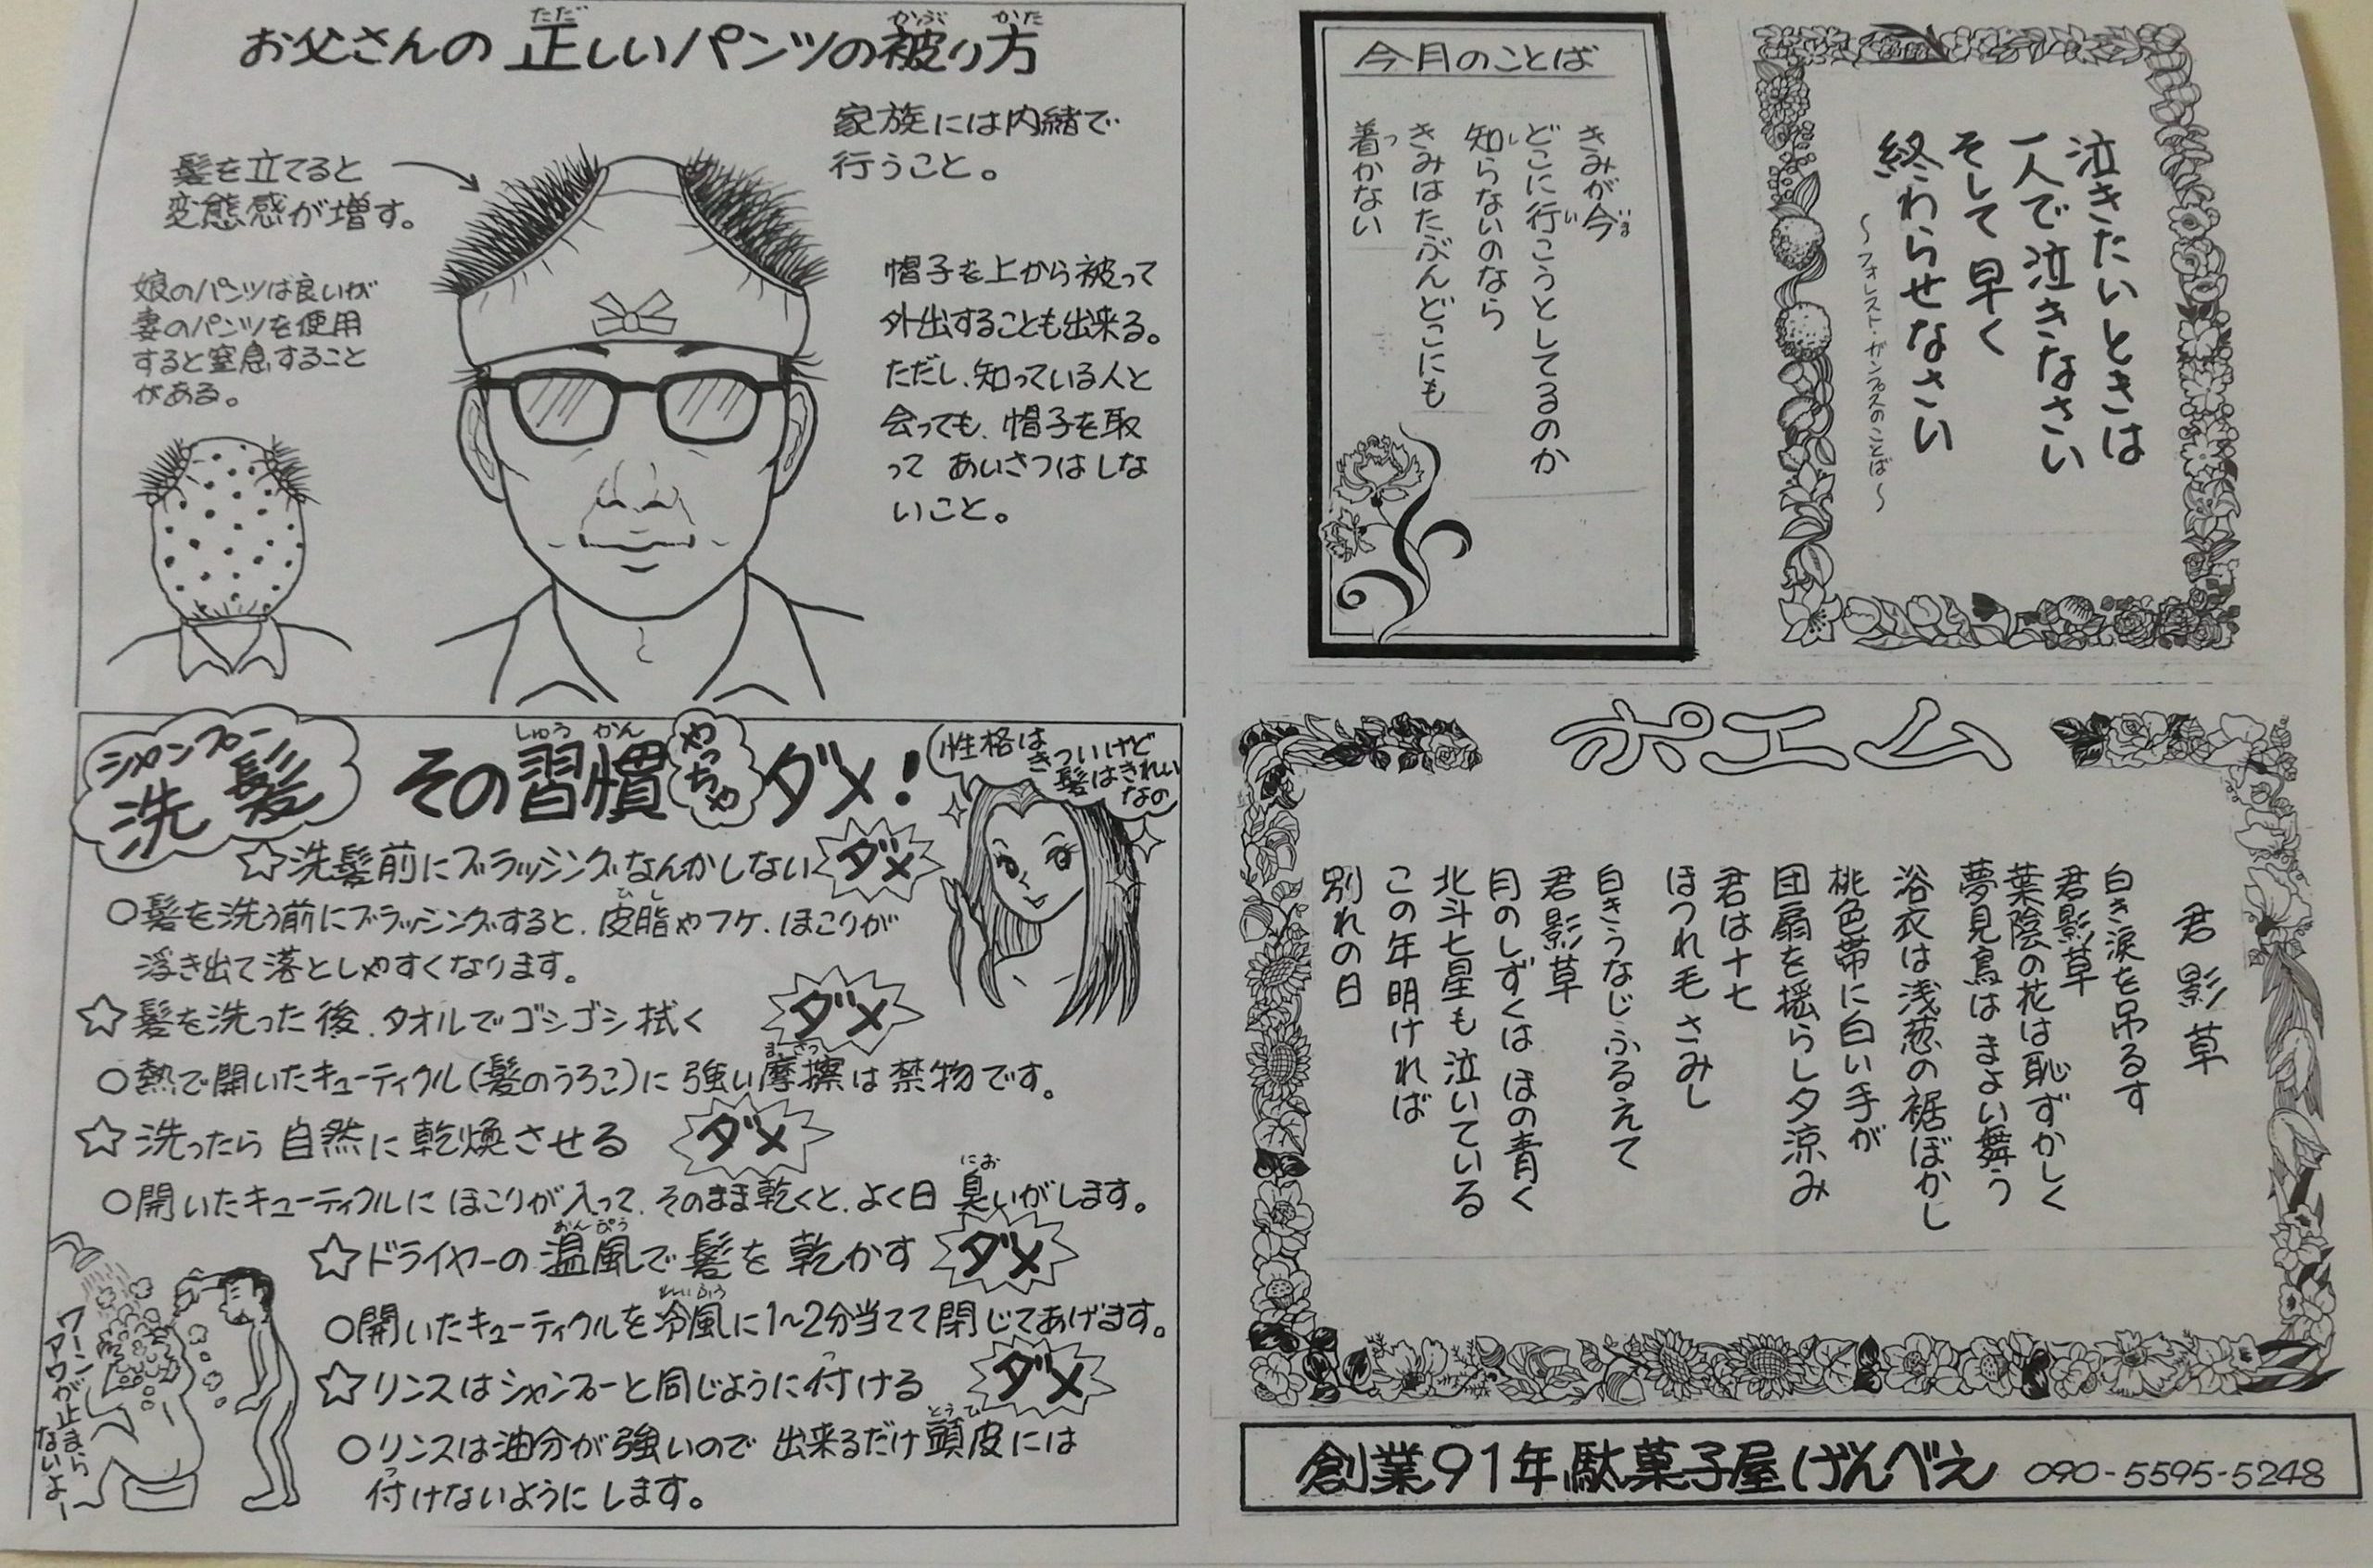 お父さんの正しいパンツの被り方
ただ
かぶ
かた
髪を立てると
変態感が増す。
家族には内緒で
行うこと。
娘のパンツは良いが
妻のパンツを使用
すると窒息すること
がある。
帽子を上から被って
外出することも出来る。
ただし、知っている人と
会っても、帽子を取
って あいさつはしな
いこと。
シャンプー
洗髪
その習慣やっちゃダメ!
しゅう かん
性格は
きついけど
髪はきれい
なの
☆洗髪前にブラッシングなんかしない ダメ
○髪を洗う前にブラッシングすると、皮脂やフケ、ほこりが
ひし
浮き出て落としやすくなります。
☆髪を洗った後、タオルでゴシゴシ拭く ダメ
○熱で開いたキューティクル(髪のうろこ)に強い摩擦は禁物です。
まさつ
☆洗ったら自然に乾燥させる ダメ
○開いたキューティクルにほこりが入って、そのまま乾くと、よく日臭いがします。
にお
☆ドライヤーの温風で髪を乾かす ダメ
おんぷう
○開いたキューティクルを冷風に1~2分当てて閉じてあげます。
れいふう
☆リンスはシャンプーと同じように付ける ダメ
つ
○リンスは油分が強いので出来るだけ頭皮には
とうひ
付けないようにします。
つ
ワーン
アワが止まら
ないよー
今月のことば
きみが今
いま
どこに行こうとしてるのか
い
知らないのなら
し
きみはたぶんどこにも
着かない
つ
泣きたいときは
一人で泣きなさい
そして早く
終わらせなさい
~フォレスト・ガンプスのことば~
ポエム
君影草
白き涙を吊るす
君影草
葉陰の花は恥ずかしく
夢見鳥はまよい舞う
浴衣は浅葱の裾ぼかし
桃色帯に白い手が
団扇を揺らし夕涼み
君は十七
ほつれ毛さみし
白きうなじふるえて
君影草
月のしずくはほの青く
北斗七星も泣いている
この年明ければ
別れの日
創業91年駄菓子屋げんべえ 090-5595-5248